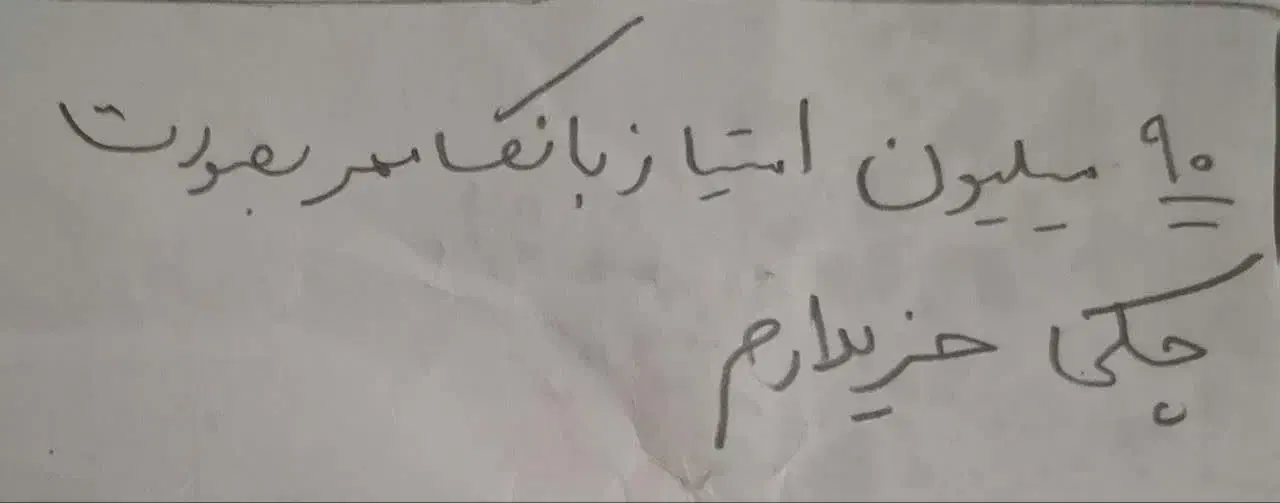 ۹۰ میلیون امتیاز بانک مهر بصورت
چکی خریدارم